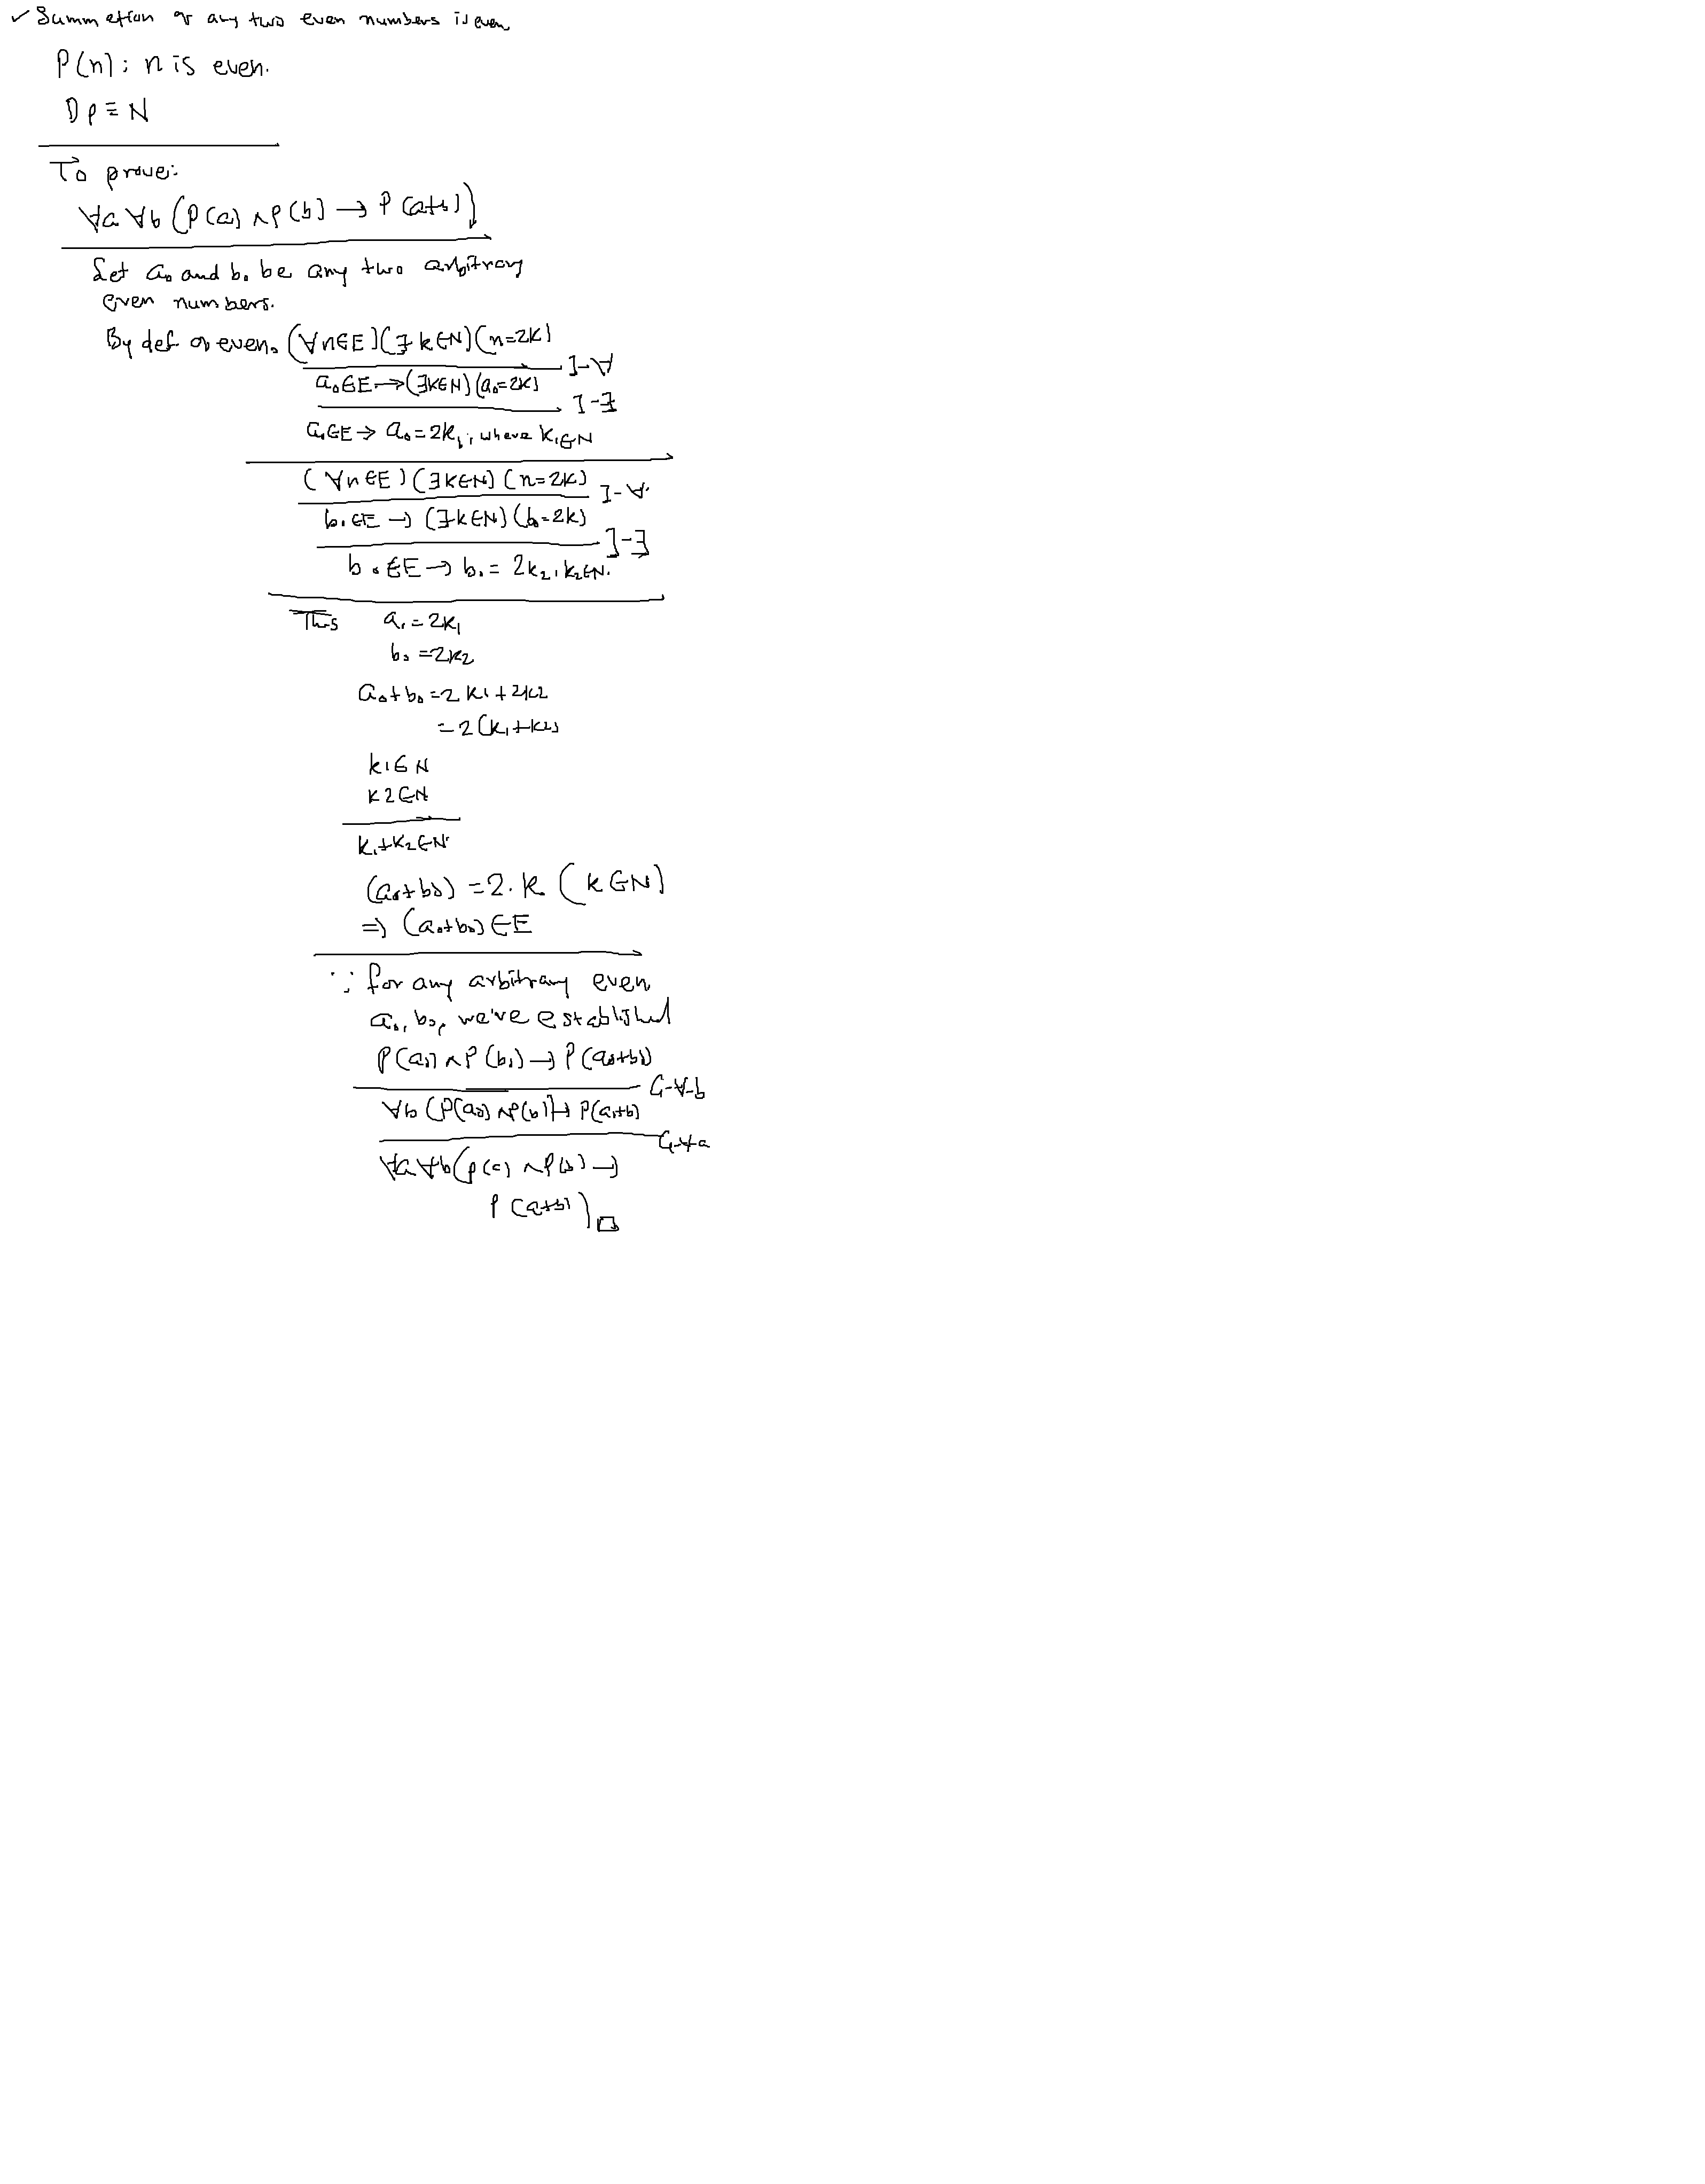 ✓ Summation of any two even numbers is even
P(n): n is even.
Dp ≡ N
To prove:
∀a ∀b (P(a) ∧ P(b) → P(a+b))
Let a₀ and b₀ be any two arbitrary
even numbers.
By def of even, (∀n∈E)(∃k∈N)(n=2k)
I-∀
a₀∈E → (∃k∈N)(a₀=2k)
I-∃
a₀∈E → a₀=2k₁, where k₁∈N
(∀n∈E)(∃k∈N)(n=2k)
I-∀
b₀∈E → (∃k∈N)(b₀=2k)
I-∃
b₀∈E → b₀=2k₂, k₂∈N.
Thus a₀=2k₁
b₀=2k₂
a₀+b₀=2k₁+2k₂
=2(k₁+k₂)
k₁∈N
k2∈N
k₁+k₂∈N
(a₀+b₀)=2.k (k∈N)
⇒ (a₀+b₀)∈E
∵ for any arbitrary even
a₀, b₀, we've established
P(a₀) ∧ P(b₀) → P(a₀+b₀)
G-∀-b
∀b (P(a₀) ∧ P(b)) → P(a₀+b)
G-∀a
∀a ∀b (P(a) ∧ P(b) →
P(a+b)) □